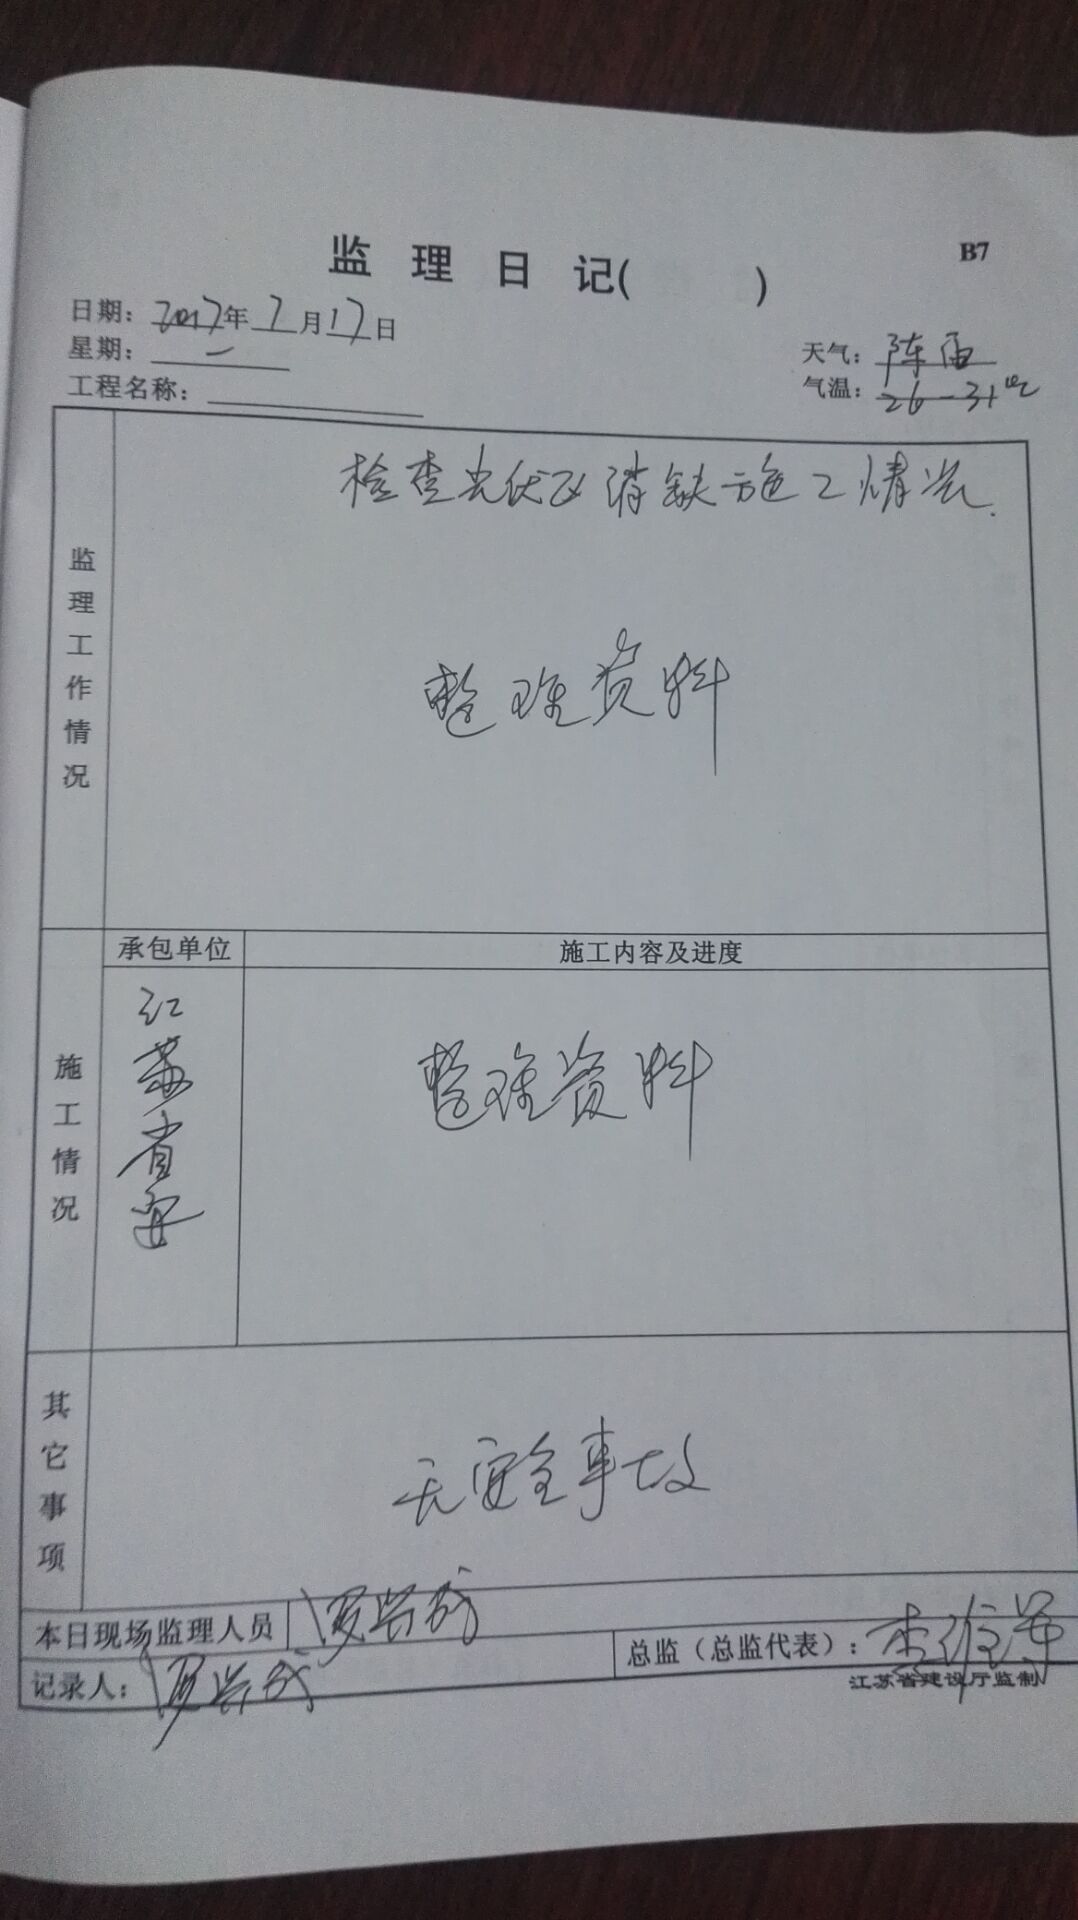 监理日记( )
B7
日期：2017年7月17日
星期：一
天气：阵雨
工程名称：
气温：26-31℃
监理工作情况
检查光伏区消缺施工情况.
整理资料
承包单位
施工内容及进度
施工情况
江苏省安
整理资料
其它事项
无安全事故
本日现场监理人员
总监（总监代表）：
记录人：
江苏省建设厅监制